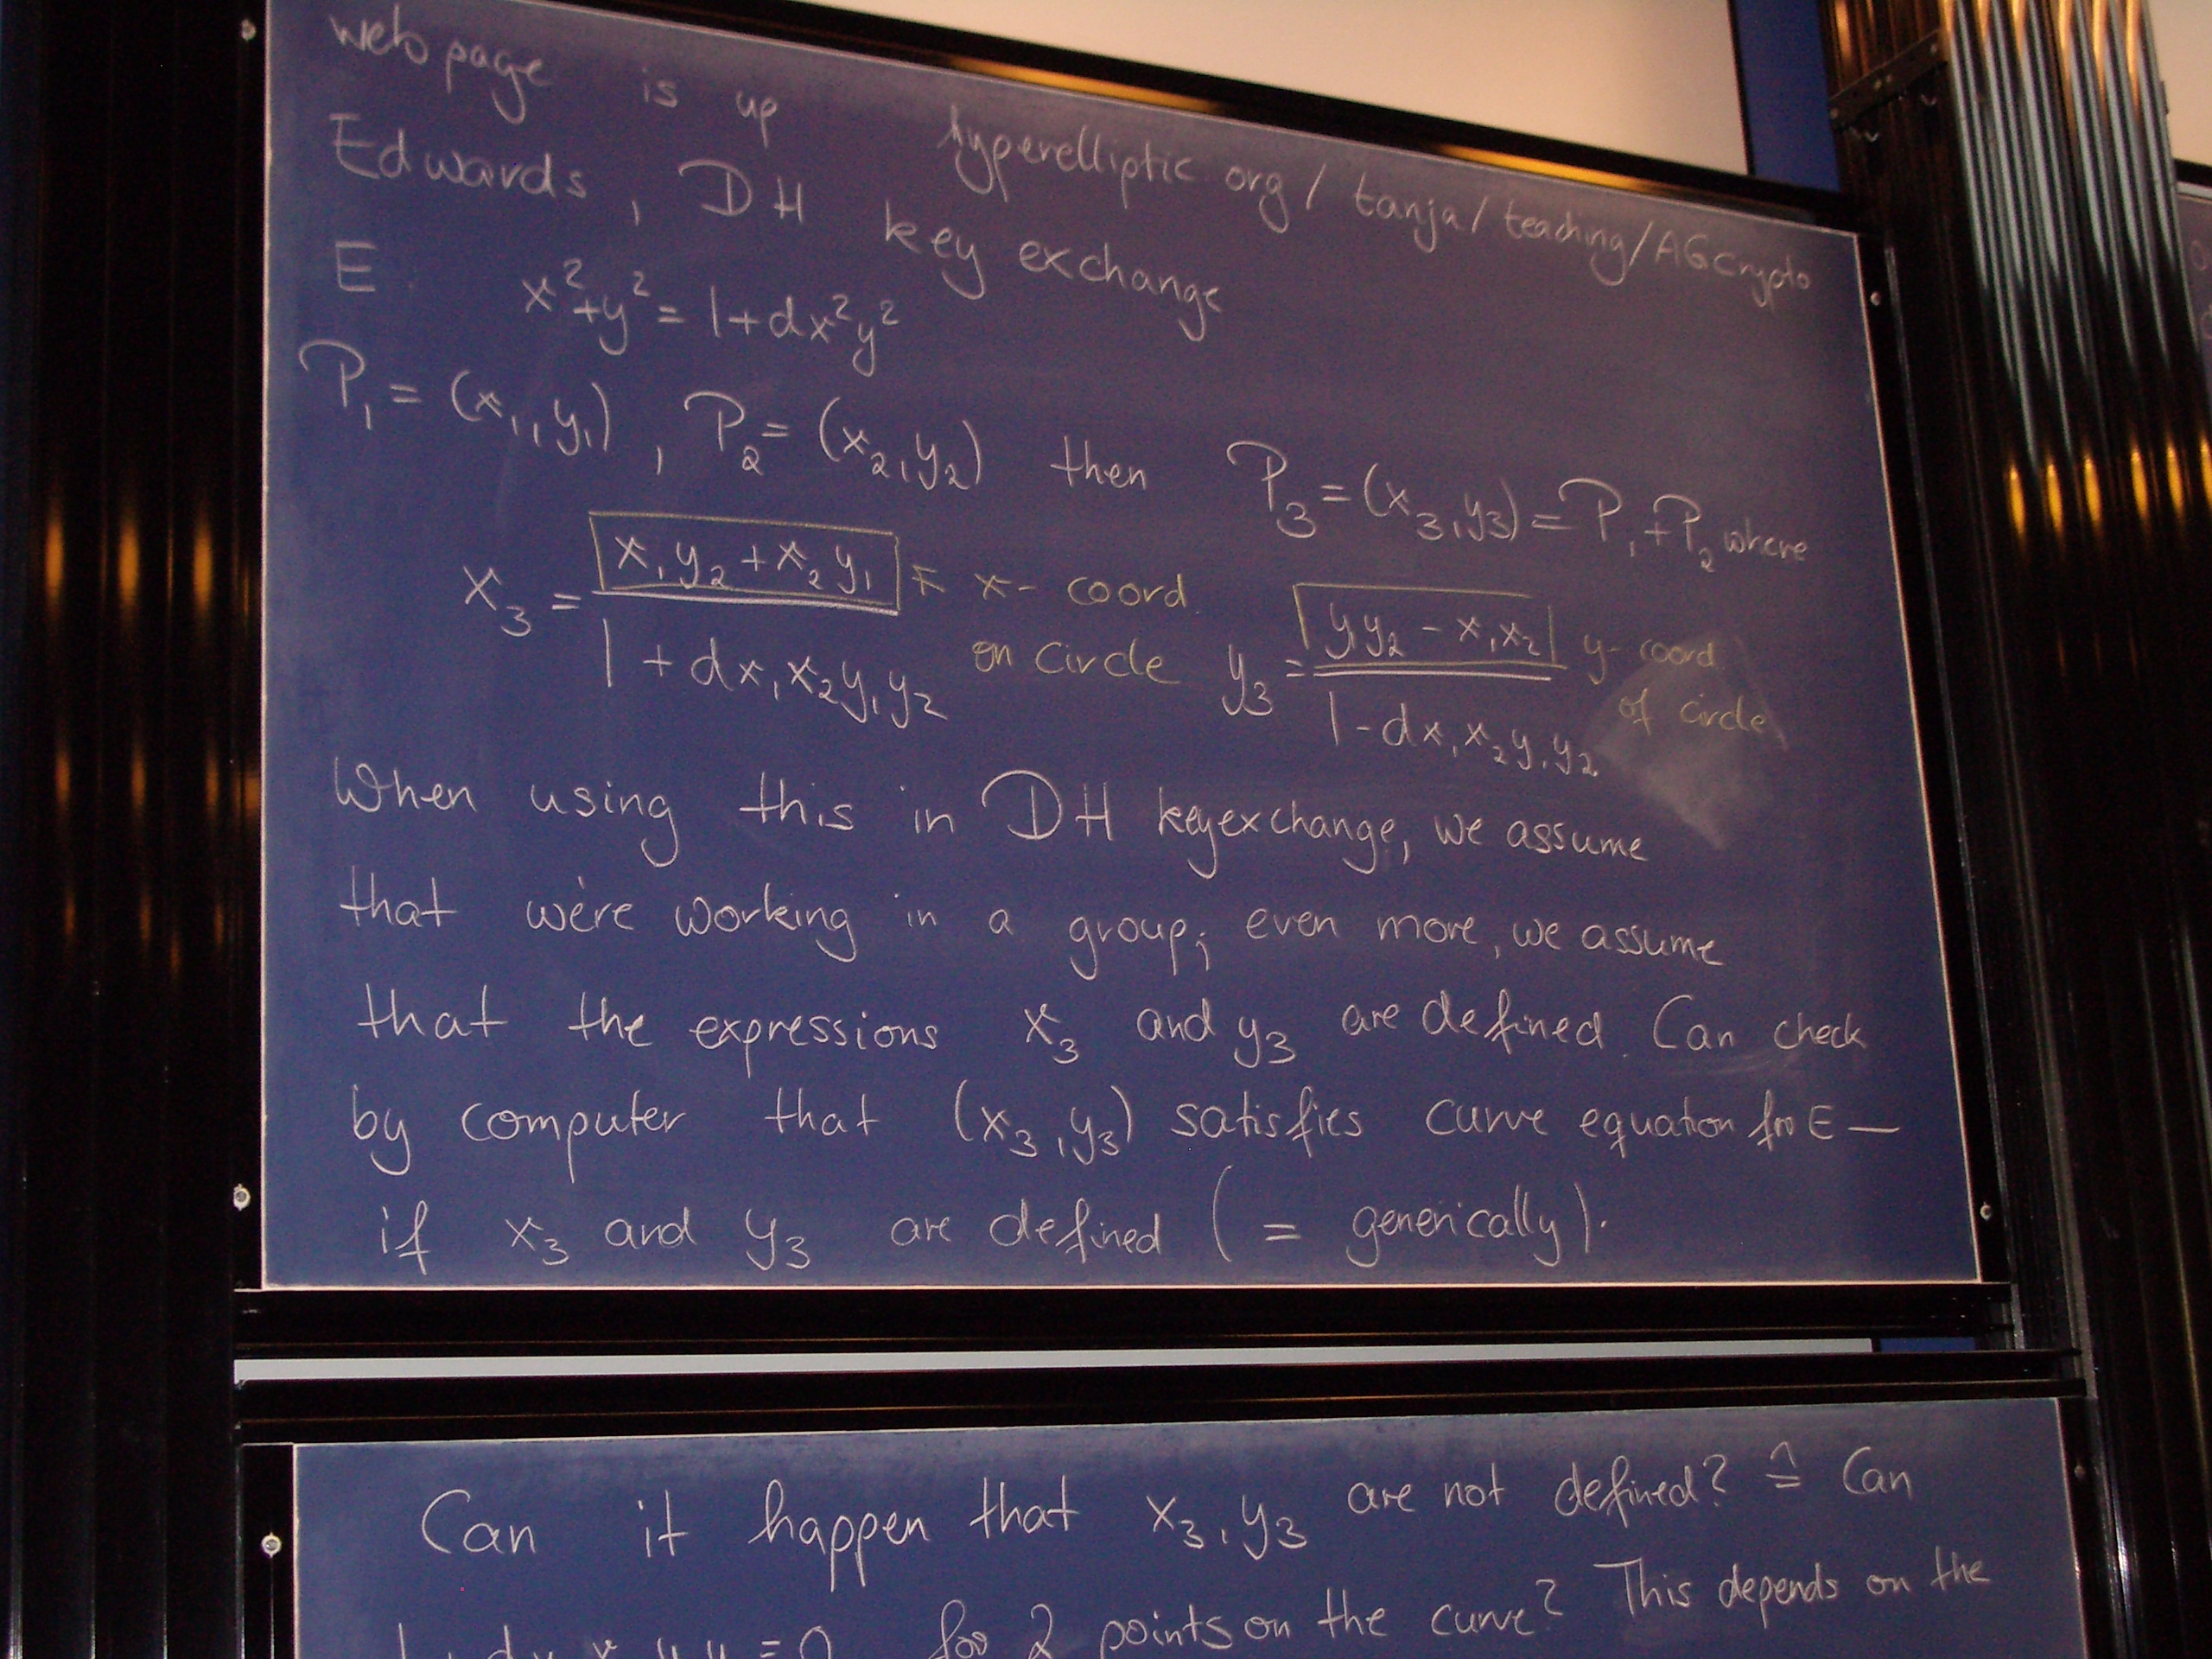 webpage is up hyperelliptic org/tanja/teaching/AGCrypto
Edwards, DH key exchange
E: x²+y² = 1+dx²y²
P₁ = (x₁,y₁), P₂ = (x₂,y₂) then P₃ = (x₃,y₃) = P₁+P₂ where
x₃ = (x₁y₂+x₂y₁)/(1+dx₁x₂y₁y₂) ← x-coord. on circle y₃ = (y₁y₂-x₁x₂)/(1-dx₁x₂y₁y₂) y-coord. of circle
When using this in DH keyexchange, we assume
that we're working in a group; even more, we assume
that the expressions x₃ and y₃ are defined. Can check
by computer that (x₃,y₃) satisfies curve equation for E –
if x₃ and y₃ are defined (= generically).
Can it happen that x₃,y₃ are not defined? ≙ Can
=0 for 2 points on the curve? This depends on the